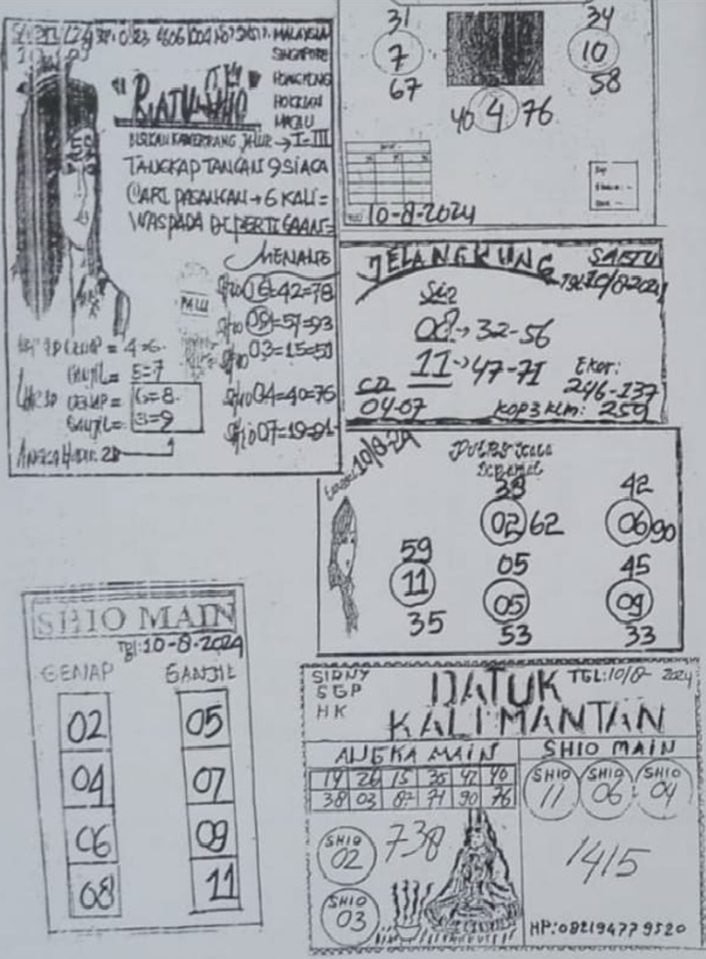 MALAYSIA
SINGAPORE
HONGKONG
HOKKIAN
MACAU
"RATU SHIO"
TANGKAP TANGAN 9 SIAGA
CARI PASANGAN → 6 KALI =
WASPADA DI PERTIGAAN =
MENANG
Shio 16=42=78
Shio 09=57=93
Shio 03=15=51
Shio 04=40=76
Shio 07=19=91
GENAP = 4=6
GANJIL = 5=7
GENAP = 6=8
GANJIL = 3=9
31
7
67
34
10
58
40 4 76
10-8-2024
JELANGKUNG SABTU
TGL 10/8-2024
Sio
08 → 32-56
11 → 47-71
CD
04-07
Ekor:
246-137
KOP3 KLM: 259
10/8-24
38
02 62
42
06 90
59
11
35
05
05
53
45
09
33
SHIO MAIN
Tgl: 10-8-2024
GENAP GANJIL
02 05
04 07
06 09
08 11
SIDNY
SGP
HK
TGL: 10/8- 2024
DATUK
KALIMANTAN
ANGKA MAIN
14 26 15 35 42 40
38 03 82 71 90 76
SHIO
02
738
SHIO
03
SHIO MAIN
SHIO 11
SHIO 06
SHIO 04
1415
HP: 082194779520